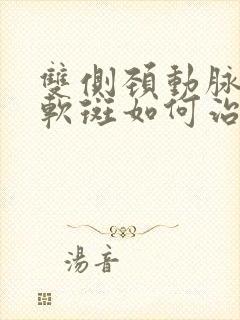 雙側頸動脈
軟斑如何治
湯音